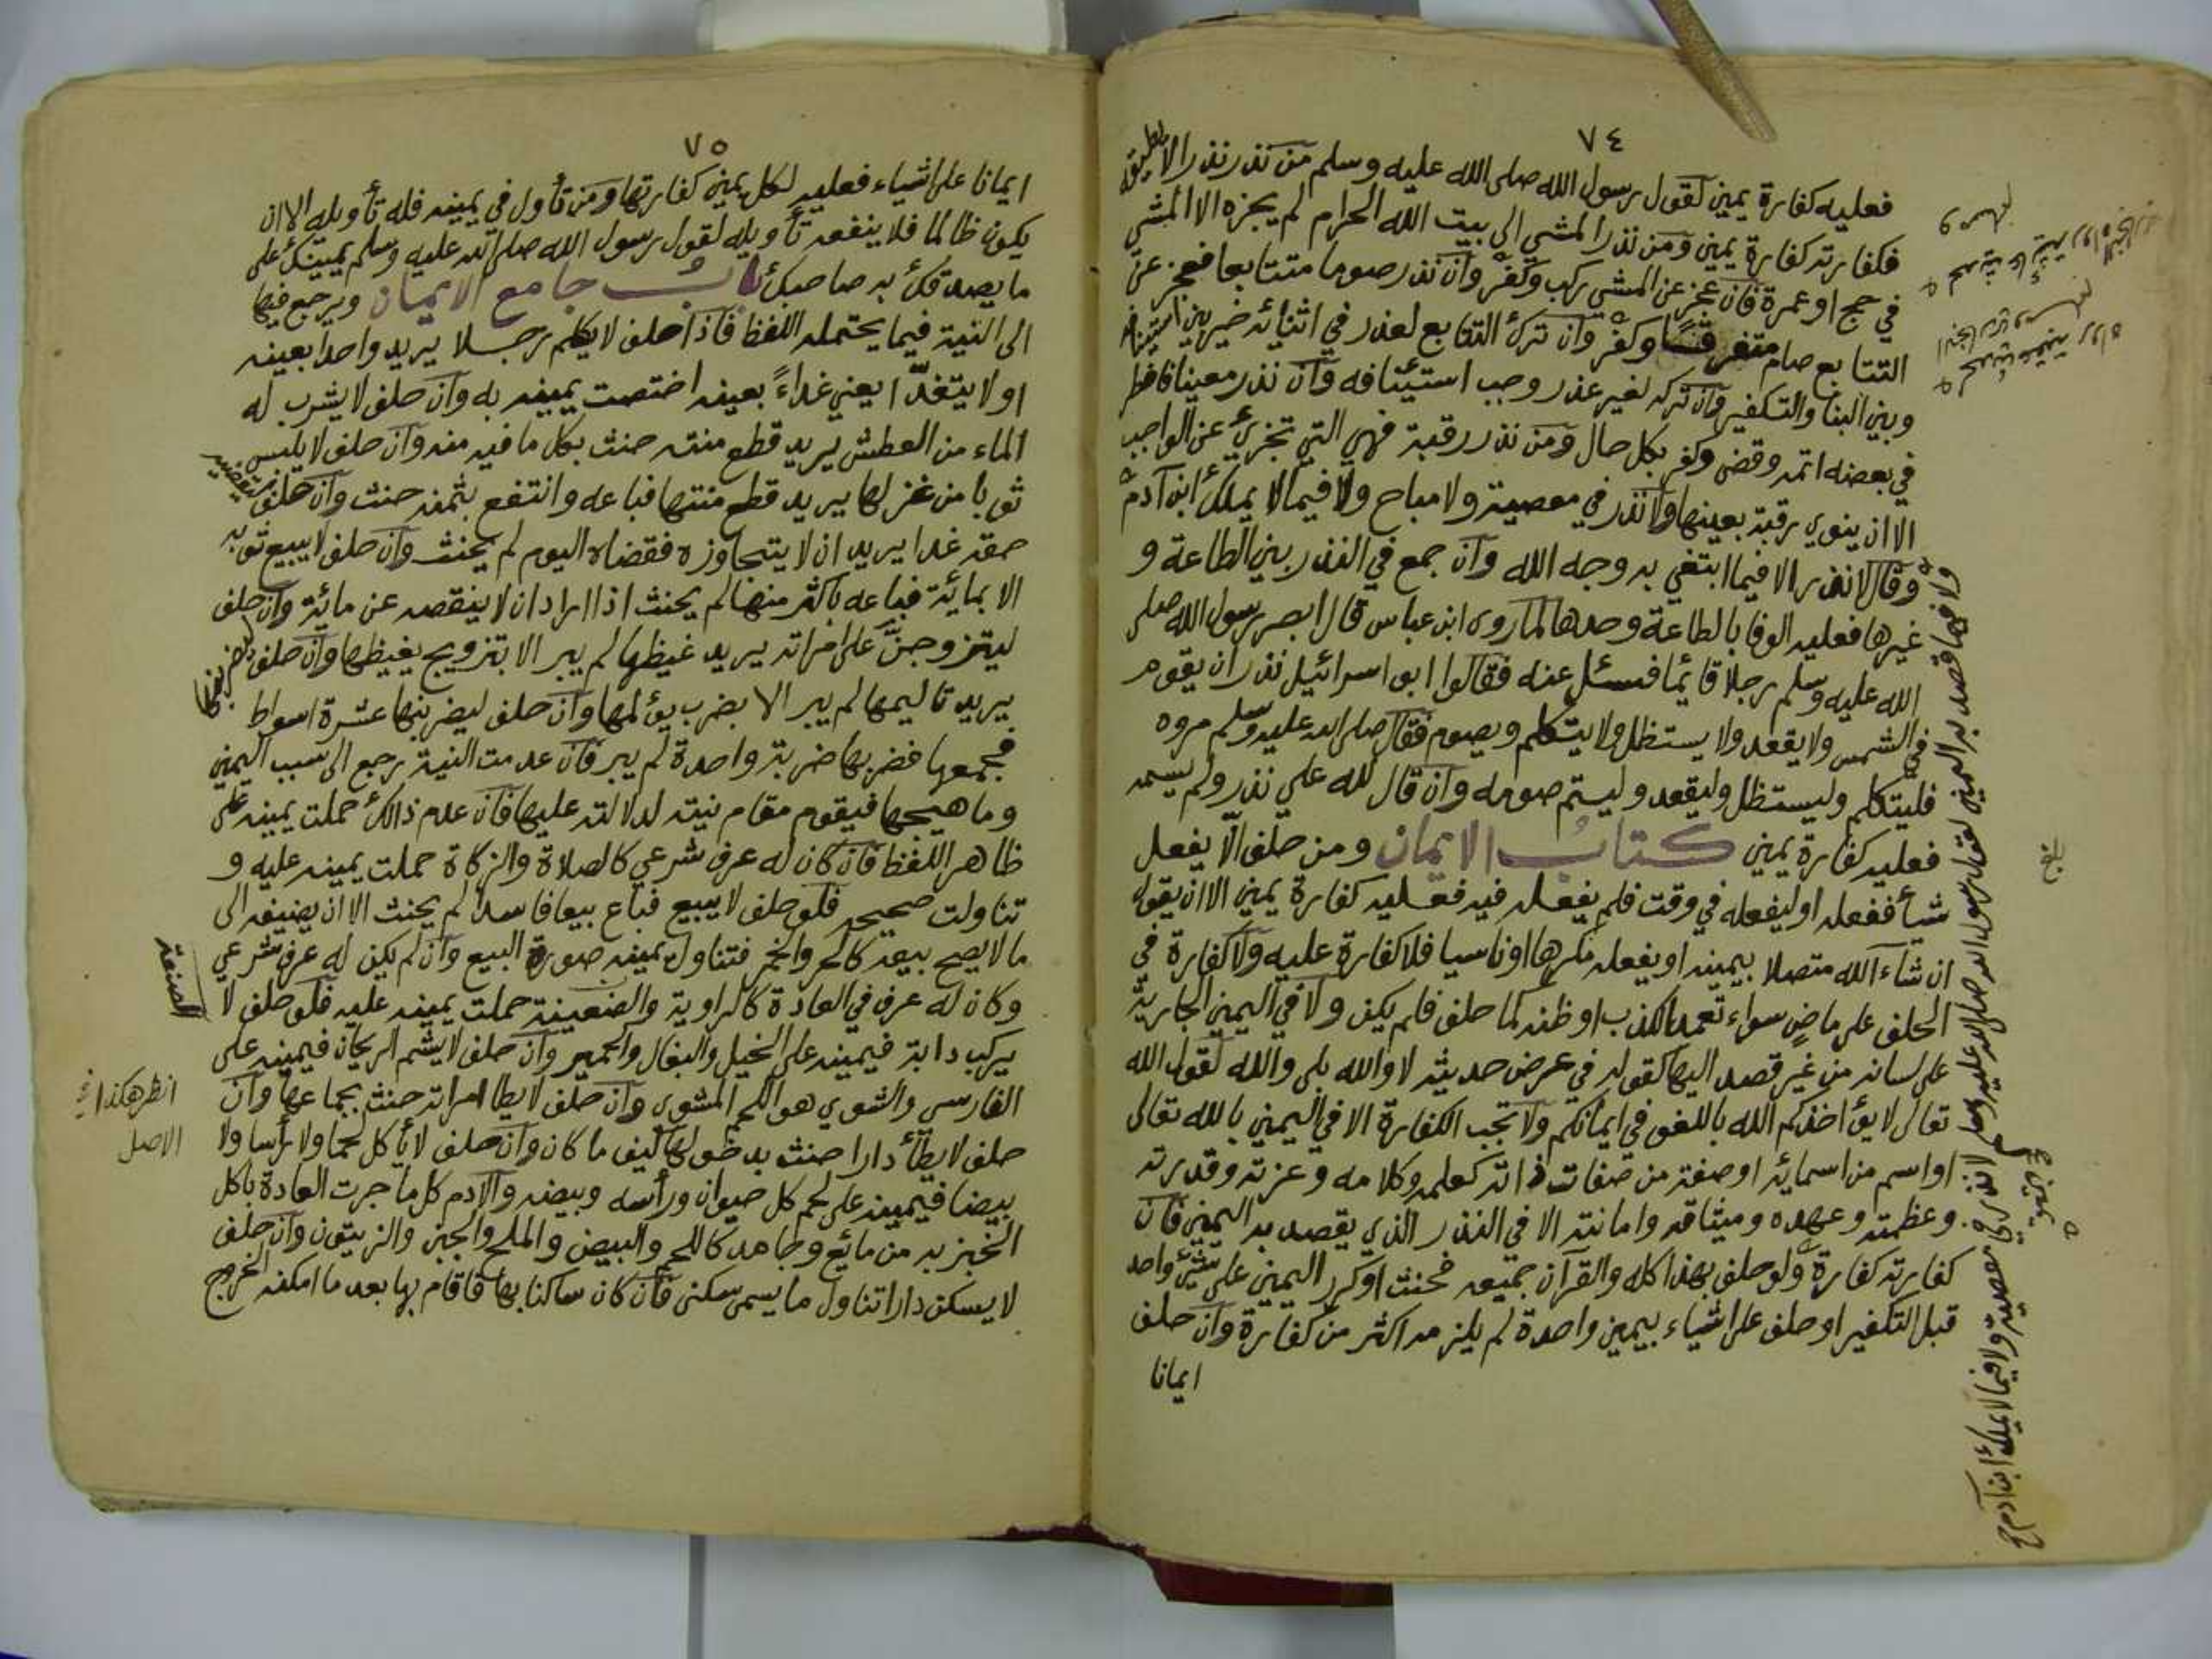 ٧٤
فعليه كفارة يمين لقول رسول الله صلى الله عليه وسلم من نذر نذرا لا يطيقه
فكفارته كفارة يمين ومن نذر المشي الى بيت الله الحرام لم يجزه الا المشي
في حج او عمرة فان عجز عن المشي ركب وكفر وان نذر صوما متتابعا فعجز عن
التتابع صام متفرقا وكفر وان ترك التتابع لعذر في اثنائه خير بين استينافه
وبين البنا والتكفير وان تركه لغير عذر وجب استئنافه وان نذر معينا فافطر
في بعضه اتمه وقضى وكفر بكل حال ومن نذر رقبة فهي التي تجزئ عن الواجب
الا ان ينوي رقبة بعينها ولا نذر في معصية ولا مباح ولا فيما لا يملك ابن آدم
وقال لا نذر الا فيما ابتغي به وجه الله وان جمع في النذر بين الطاعة و
غيرها فعليه الوفا بالطاعة وحدها لما روى ابن عباس قال ابصر رسول الله صلى
الله عليه وسلم رجلا قائما فسئل عنه فقالوا ابو اسرائيل نذر ان يقوم
في الشمس ولا يقعد ولا يستظل ولا يتكلم ويصوم فقال صلى الله عليه وسلم مروه
فليتكلم وليستظل وليقعد وليتم صومه وان قال لله علي نذر ولم يسمه
فعليه كفارة يمين كتاب الايمان ومن حلف الا يفعل
شيأ ففعله او ليفعله في وقت فلم يفعله فيه فعليه كفارة يمين الا ان يقول
ان شاء الله متصلا بيمينه او يفعله مكرها او ناسيا فلا كفارة عليه ولا كفارة في
الحلف على ماضٍ سواء تعمد الكذب او ظنه كما حلف فلم يكن ولا في اليمين الجارية
على لسانه من غير قصد اليها كقوله في عرض حديثه لا والله بلى والله لقول الله
تعالى لا يؤاخذكم الله باللغو في ايمانكم ولا تجب الكفارة الا في اليمين بالله تعالى
او اسم من اسمائه او صفة من صفات ذاته كعلمه وكلامه وعزته وقدرته
وعظمته وعهده وميثاقه وامانته الا في النذر الذي يقصد به اليمين فان
كفارته كفارة ولو حلف بهذا كله والقرآن جميعه فحنث او كرر اليمين على شئ واحد
قبل التكفير او حلف على اشياء بيمين واحدة لم يلزمه اكثر من كفارة وان حلف
ايمانا
ولا فيما قصد به اليمين لقول رسول الله صلى الله عليه وسلم لا نذر في معصية ولا فيما لا يملك ابن آدم
٧٥
ايمانا على اشياء فعليه لكل يمين كفارتها ومن تأول في يمينه فله تأويله الا ان
يكون ظالما فلا ينفعه تأويله لقول رسول الله صلى الله عليه وسلم يمينك على
ما يصدقك به صاحبك باب جامع الايمان ويرجع فيها
الى النية فيما يحتمله اللفظ فاذا حلف لا يكلم رجلا يريد واحدا بعينه
او لا يتغدّا يعني غداءً بعينه اختصت يمينه به وان حلف لا يشرب له
الماء من العطش يريد قطع منته حنث بكل ما فيه منه وان حلف لا يلبس
ثوبا من غزلها يريد قطع منتها فباعه وانتفع بثمنه حنث وان حلف ليقضيه
حقه غدا يريد ان لا يتجاوزه فقضاه اليوم لم يحنث وان حلف لا يبيع ثوبه
الا بمائة فباعه باكثر منها لم يحنث اذا اراد ان لا ينقصه عن مائة وان حلف
ليتزوجنّ على امراته يريد غيظها لم يبر الا بتزويج يغيظها وان حلف ليضربنها
يريد تاليمها لم يبر الا بضرب يؤلمها وان حلف ليضربنها عشرة اسواط
فجمعها فضربها ضربة واحدة لم يبر فان عدمت النية رجع الى سبب اليمين
وما هيجها فيقوم مقام نيته لدلالته عليها فان عدم ذالك حملت يمينه على
ظاهر اللفظ فان كان له عرف شرعي كالصلاة والزكاة حملت يمينه عليه و
تناولت صحيحه فلو حلف لا يبيع فباع بيعا فاسدا لم يحنث الا ان يضيفه الى
ما لا يصح بيعه كالحر والخمر فتناول يمينه صورة البيع وان لم يكن له عرف شرعي
وكان له عرف في العادة كالراوية والضعينة حملت يمينه عليه فلو حلف لا
يركب دابة فيمينه على الخيل والبغال والحمير وان حلف لا يشم الريحان فيمينه على
الفارسي والشوي هو اللحم المشوي وان حلف لا يطا امراته حنث بجماعها وان
حلف لا يطأ دارا حنث بدخولها كيف ما كان وان حلف لا يأكل لحما ولا رأسا ولا
بيضا فيمينه على لحم كل حيوان ورأسه وبيضه والادم كل ما جرت العادة باكل
الخبز به من مائع وجامد كاللحم والبيض والملح والجبن والزيتون وان حلف
لا يسكن دارا تناول ما يسمى سكنى فان كان ساكنا بها فاقام بها بعد ما امكنه الخروج
انظر هكذا في
الاصل